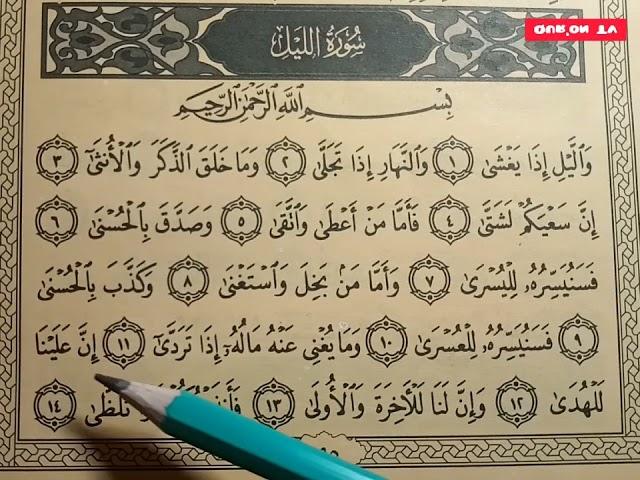 سُورَةُ اللَّيْلِ
بِسْمِ ٱللَّهِ ٱلرَّحْمَٰنِ ٱلرَّحِيمِ
وَٱلَّيْلِ إِذَا يَغْشَىٰ ١ وَٱلنَّهَارِ إِذَا تَجَلَّىٰ ٢ وَمَا خَلَقَ ٱلذَّكَرَ وَٱلْأُنثَىٰٓ ٣
إِنَّ سَعْيَكُمْ لَشَتَّىٰ ٤ فَأَمَّا مَنْ أَعْطَىٰ وَٱتَّقَىٰ ٥ وَصَدَّقَ بِٱلْحُسْنَىٰ ٦
فَسَنُيَسِّرُهُۥ لِلْيُسْرَىٰ ٧ وَأَمَّا مَنۢ بَخِلَ وَٱسْتَغْنَىٰ ٨ وَكَذَّبَ بِٱلْحُسْنَىٰ
٩ فَسَنُيَسِّرُهُۥ لِلْعُسْرَىٰ ١٠ وَمَا يُغْنِى عَنْهُ مَالُهُۥٓ إِذَا تَرَدَّىٰٓ ١١ إِنَّ عَلَيْنَا
لَلْهُدَىٰ ١٢ وَإِنَّ لَنَا لَلْءَاخِرَةَ وَٱلْأُولَىٰ ١٣ تَلَظَّىٰ ١٤